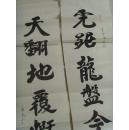 虎踞龍盤今
天翻地覆慨